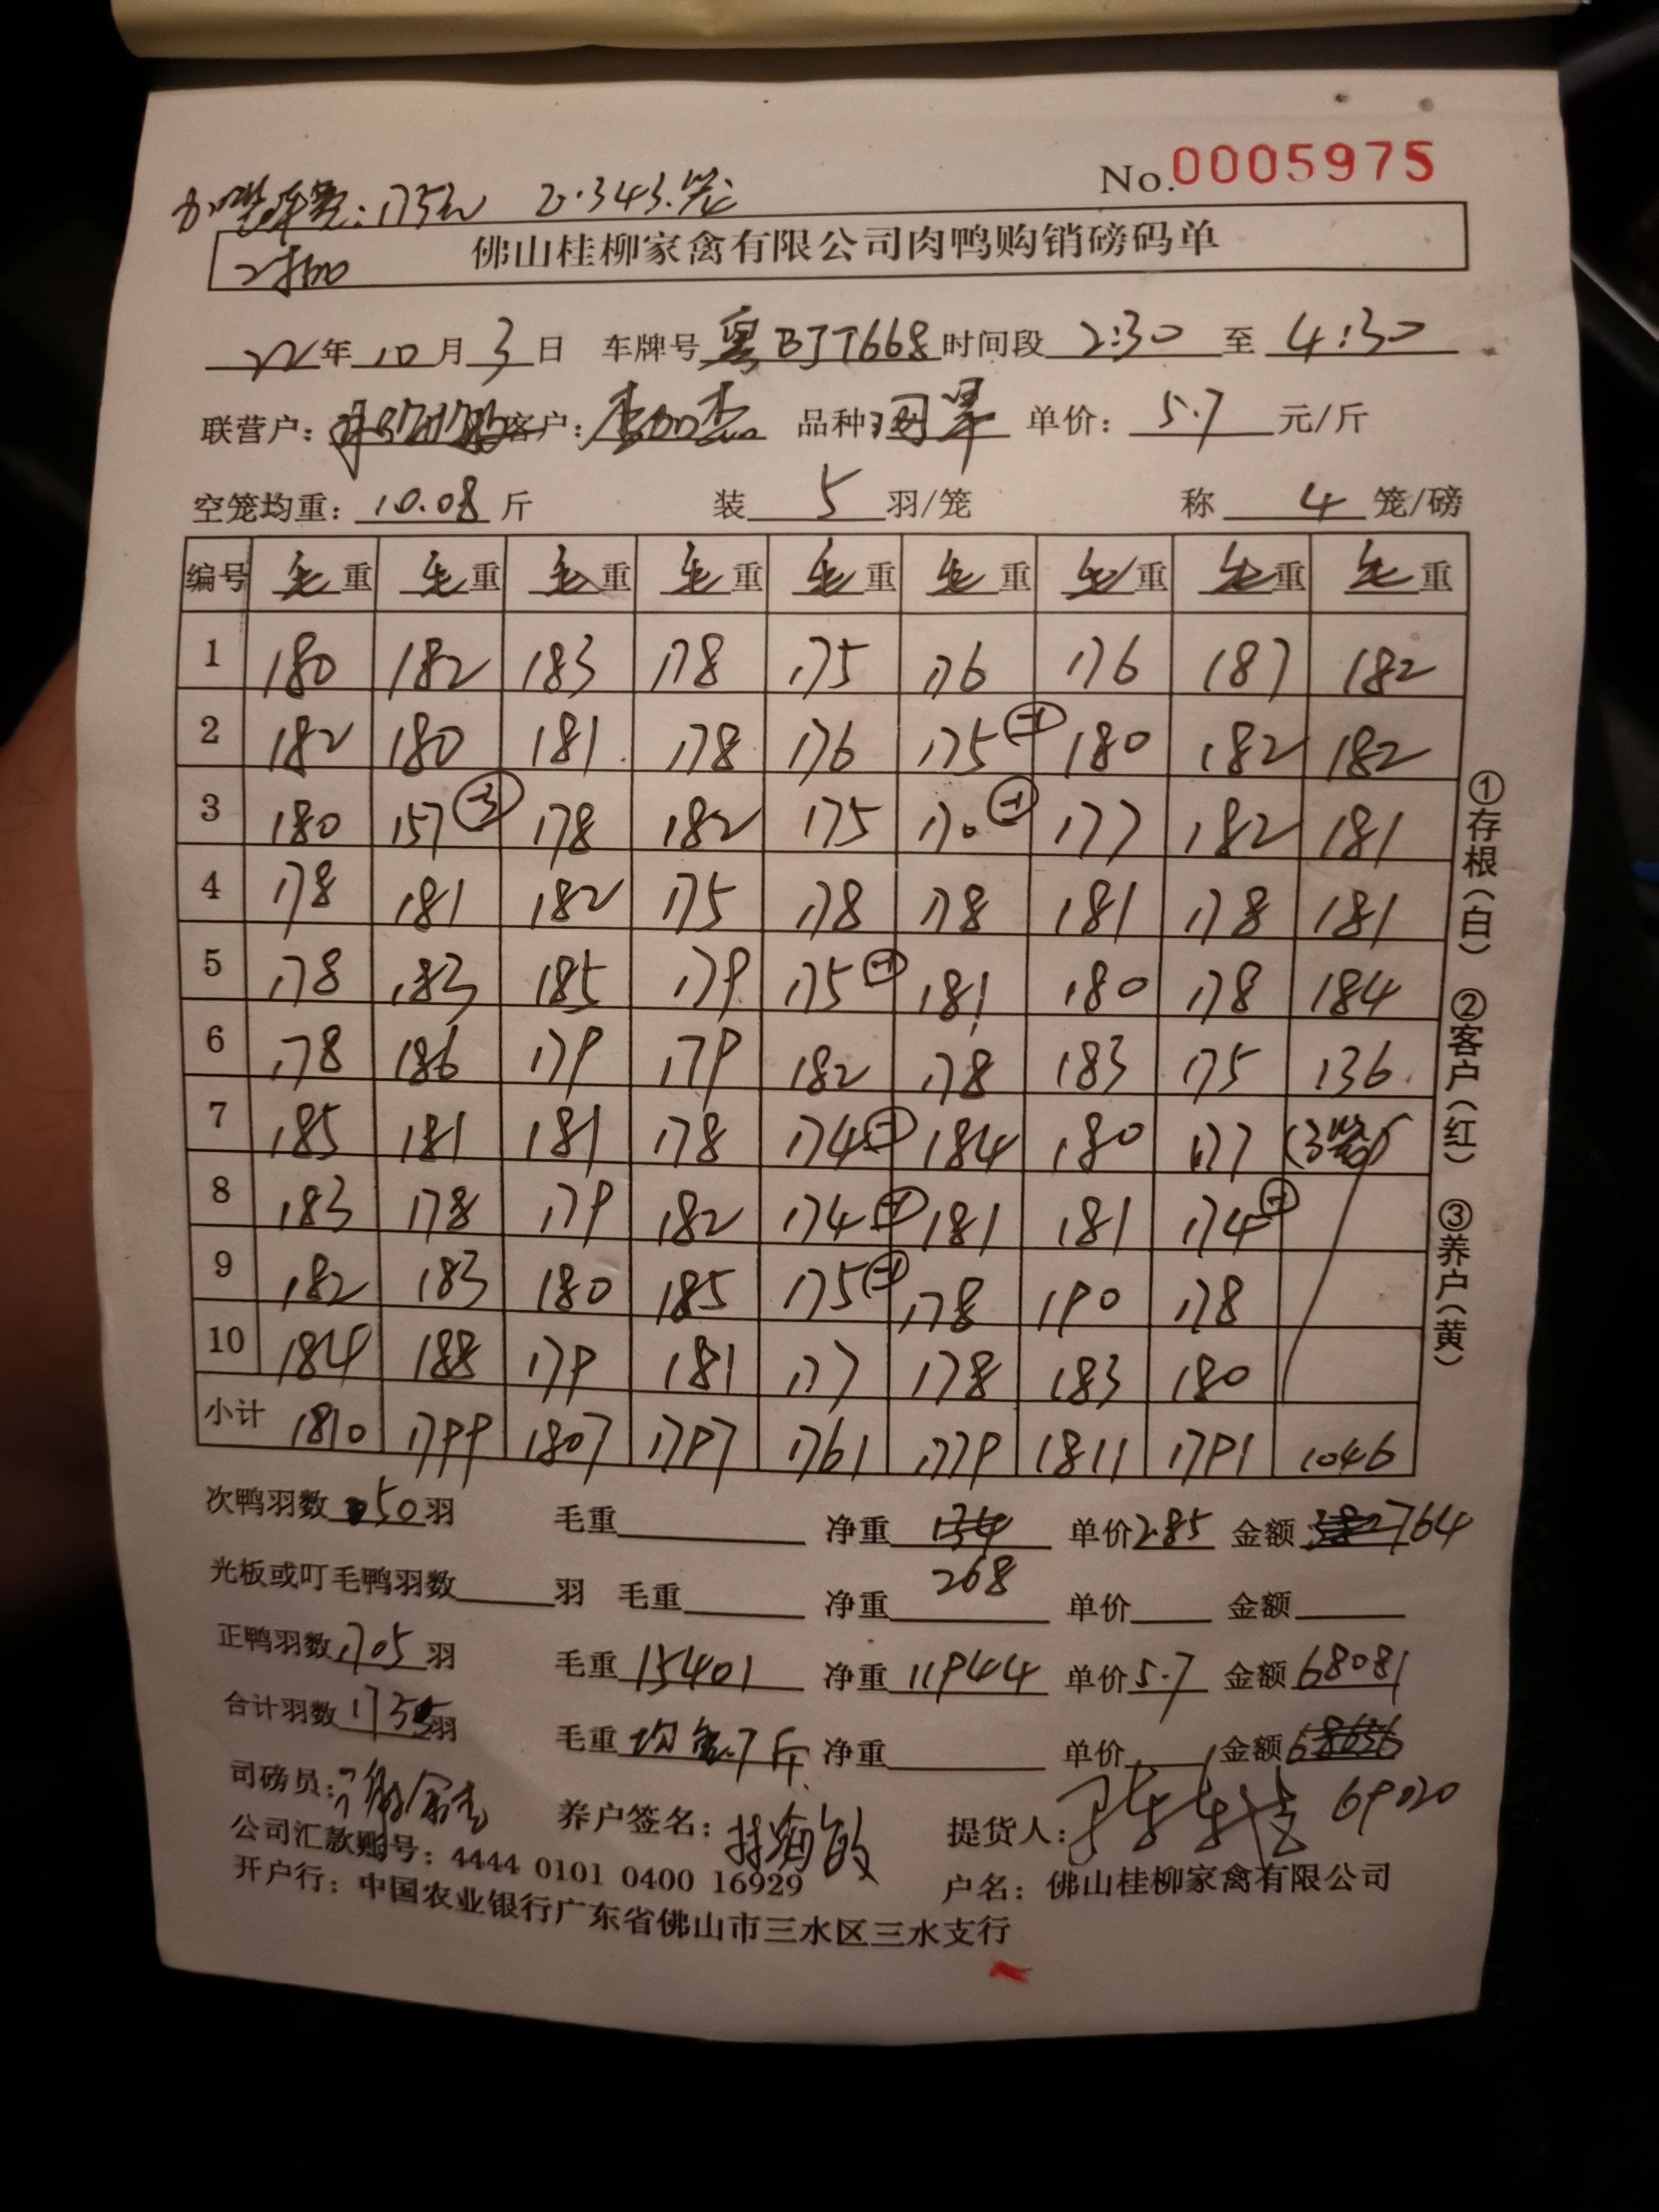 No.0005975
车费:175元 343.笼
佛山桂柳家禽有限公司肉鸭购销磅码单
22年10月3日 车牌号粤BJT668时间段2:30至4:30
联营户: 客户: 品种: 单价:5.7元/斤
空笼均重:10.08斤 装5羽/笼 称4笼/磅
编号 毛重 毛重 毛重 毛重 毛重 毛重 毛重 毛重 毛重
1 180 182 183 178 175 176 176 187 182
2 182 180 181 178 176 175 -1 180 182 182
3 180 157 -3 178 182 175 170 -1 177 182 181
4 178 181 182 175 178 178 181 178 181
5 178 183 185 179 175 -1 181 180 178 184
6 178 186 179 179 182 178 183 175 136
7 185 181 181 178 174 -1 184 180 177 (3笼)
8 183 178 179 182 174 -1 181 181 174 -1
9 182 183 180 185 175 -1 178 190 178
10 184 188 179 181 177 178 183 180
小计 1810 1799 1807 1797 1761 1779 1811 1791 1046
次鸭羽数50羽 毛重 净重134 单价2.85 金额764
268
光板或叮毛鸭羽数 羽 毛重 净重 单价 金额
正鸭羽数1705羽 毛重15401 净重11944 单价5.7 金额68081
合计羽数1735羽 毛重均重7斤 净重 单价 金额
69020
司磅员: 养户签名: 提货人:
公司汇款账号:4444 0101 0400 16929 户名:佛山桂柳家禽有限公司
开户行:中国农业银行广东省佛山市三水区三水支行
①存根(白) ②客户(红) ③养户(黄)